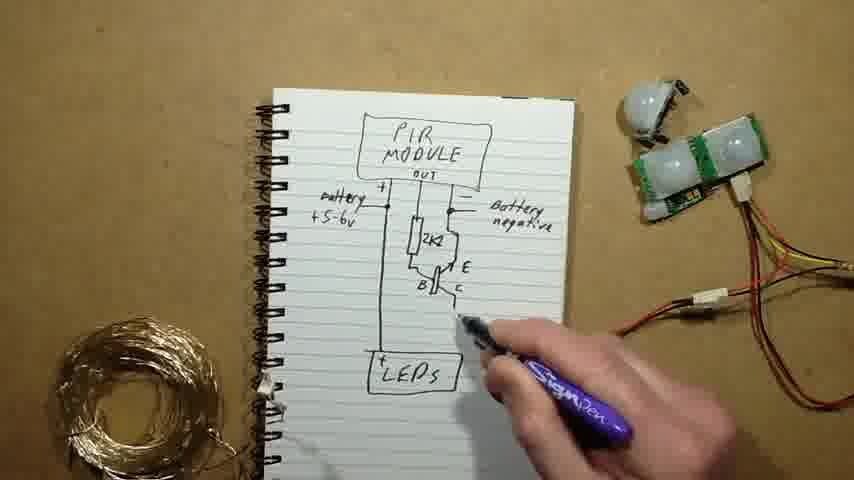 PIR
MODULE
OUT
+
-
Battery
+5-6v
Battery
negative
2K2
E
B
C
+
LEDs
Sign Pen